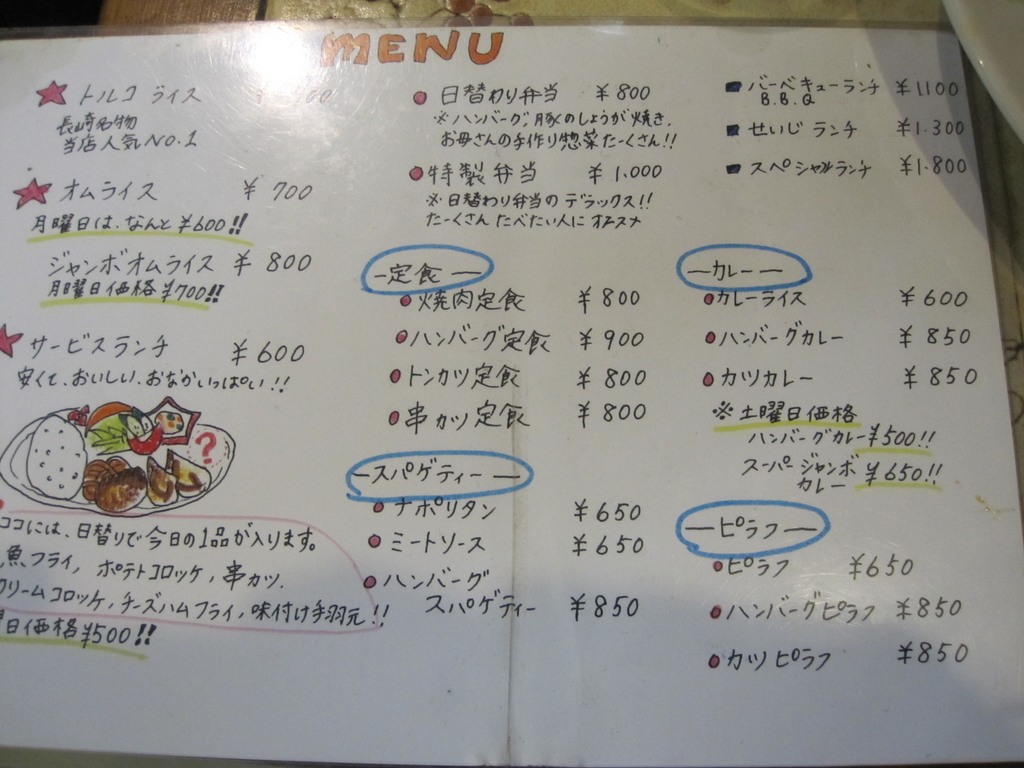 MENU
★ トルコ ライス ¥
長崎名物
当店人気No.1
★ オムライス ¥700
月曜日は、なんと¥600!!
ジャンボオムライス ¥800
月曜日価格¥700!!
★ サービスランチ ¥600
安くて、おいしい、おなかいっぱい!!
?
ココには、日替りで今日の1品が入ります。
魚フライ, ポテトコロッケ, 串カツ,
クリームコロッケ, チーズハムフライ, 味付け手羽元!!
日価格¥500!!
● 日替わり弁当 ¥800
※ハンバーグ, 豚のしょうが焼き,
お母さんの手作り惣菜たーくさん!!
● 特製弁当 ¥1.000
※日替わり弁当のデラックス!!
たーくさんたべたい人にオススメ
―定食―
● 焼肉定食 ¥800
● ハンバーグ定食 ¥900
● トンカツ定食 ¥800
● 串カツ定食 ¥800
―スパゲティー―
● ナポリタン ¥650
● ミートソース ¥650
● ハンバーグ
スパゲティー ¥850
■ バーベキューランチ ¥1100
B.B.Q
■ せいじランチ ¥1.300
■ スペシャルランチ ¥1.800
―カレー―
● カレーライス ¥600
● ハンバーグカレー ¥850
● カツカレー ¥850
※土曜日価格
ハンバーグカレー¥500!!
スーパージャンボ
カレー ¥650!!
―ピラフ―
● ピラフ ¥650
● ハンバーグピラフ ¥850
● カツピラフ ¥850